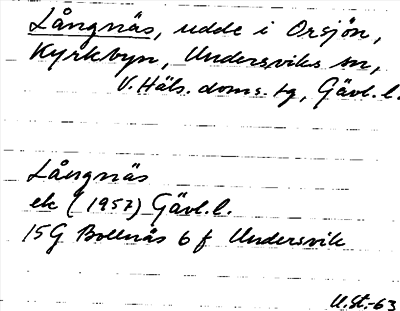 Långnäs, udde i Orsjön,
Kyrkbyn, Undersviks sn,
V. Häls. doms. tg, Gävl. l.
Långnäs
ek (1957) Gävl. l.
15G Bollnäs 6 f Undersvik
U.St.-63